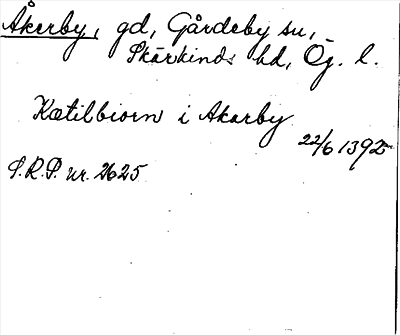 Åkerby, gd, Gårdeby sn,
Skärkinds hd, Ög. l.
Kætilbiorn i Akarby
22/6 1392
S.R.P. nr. 2625